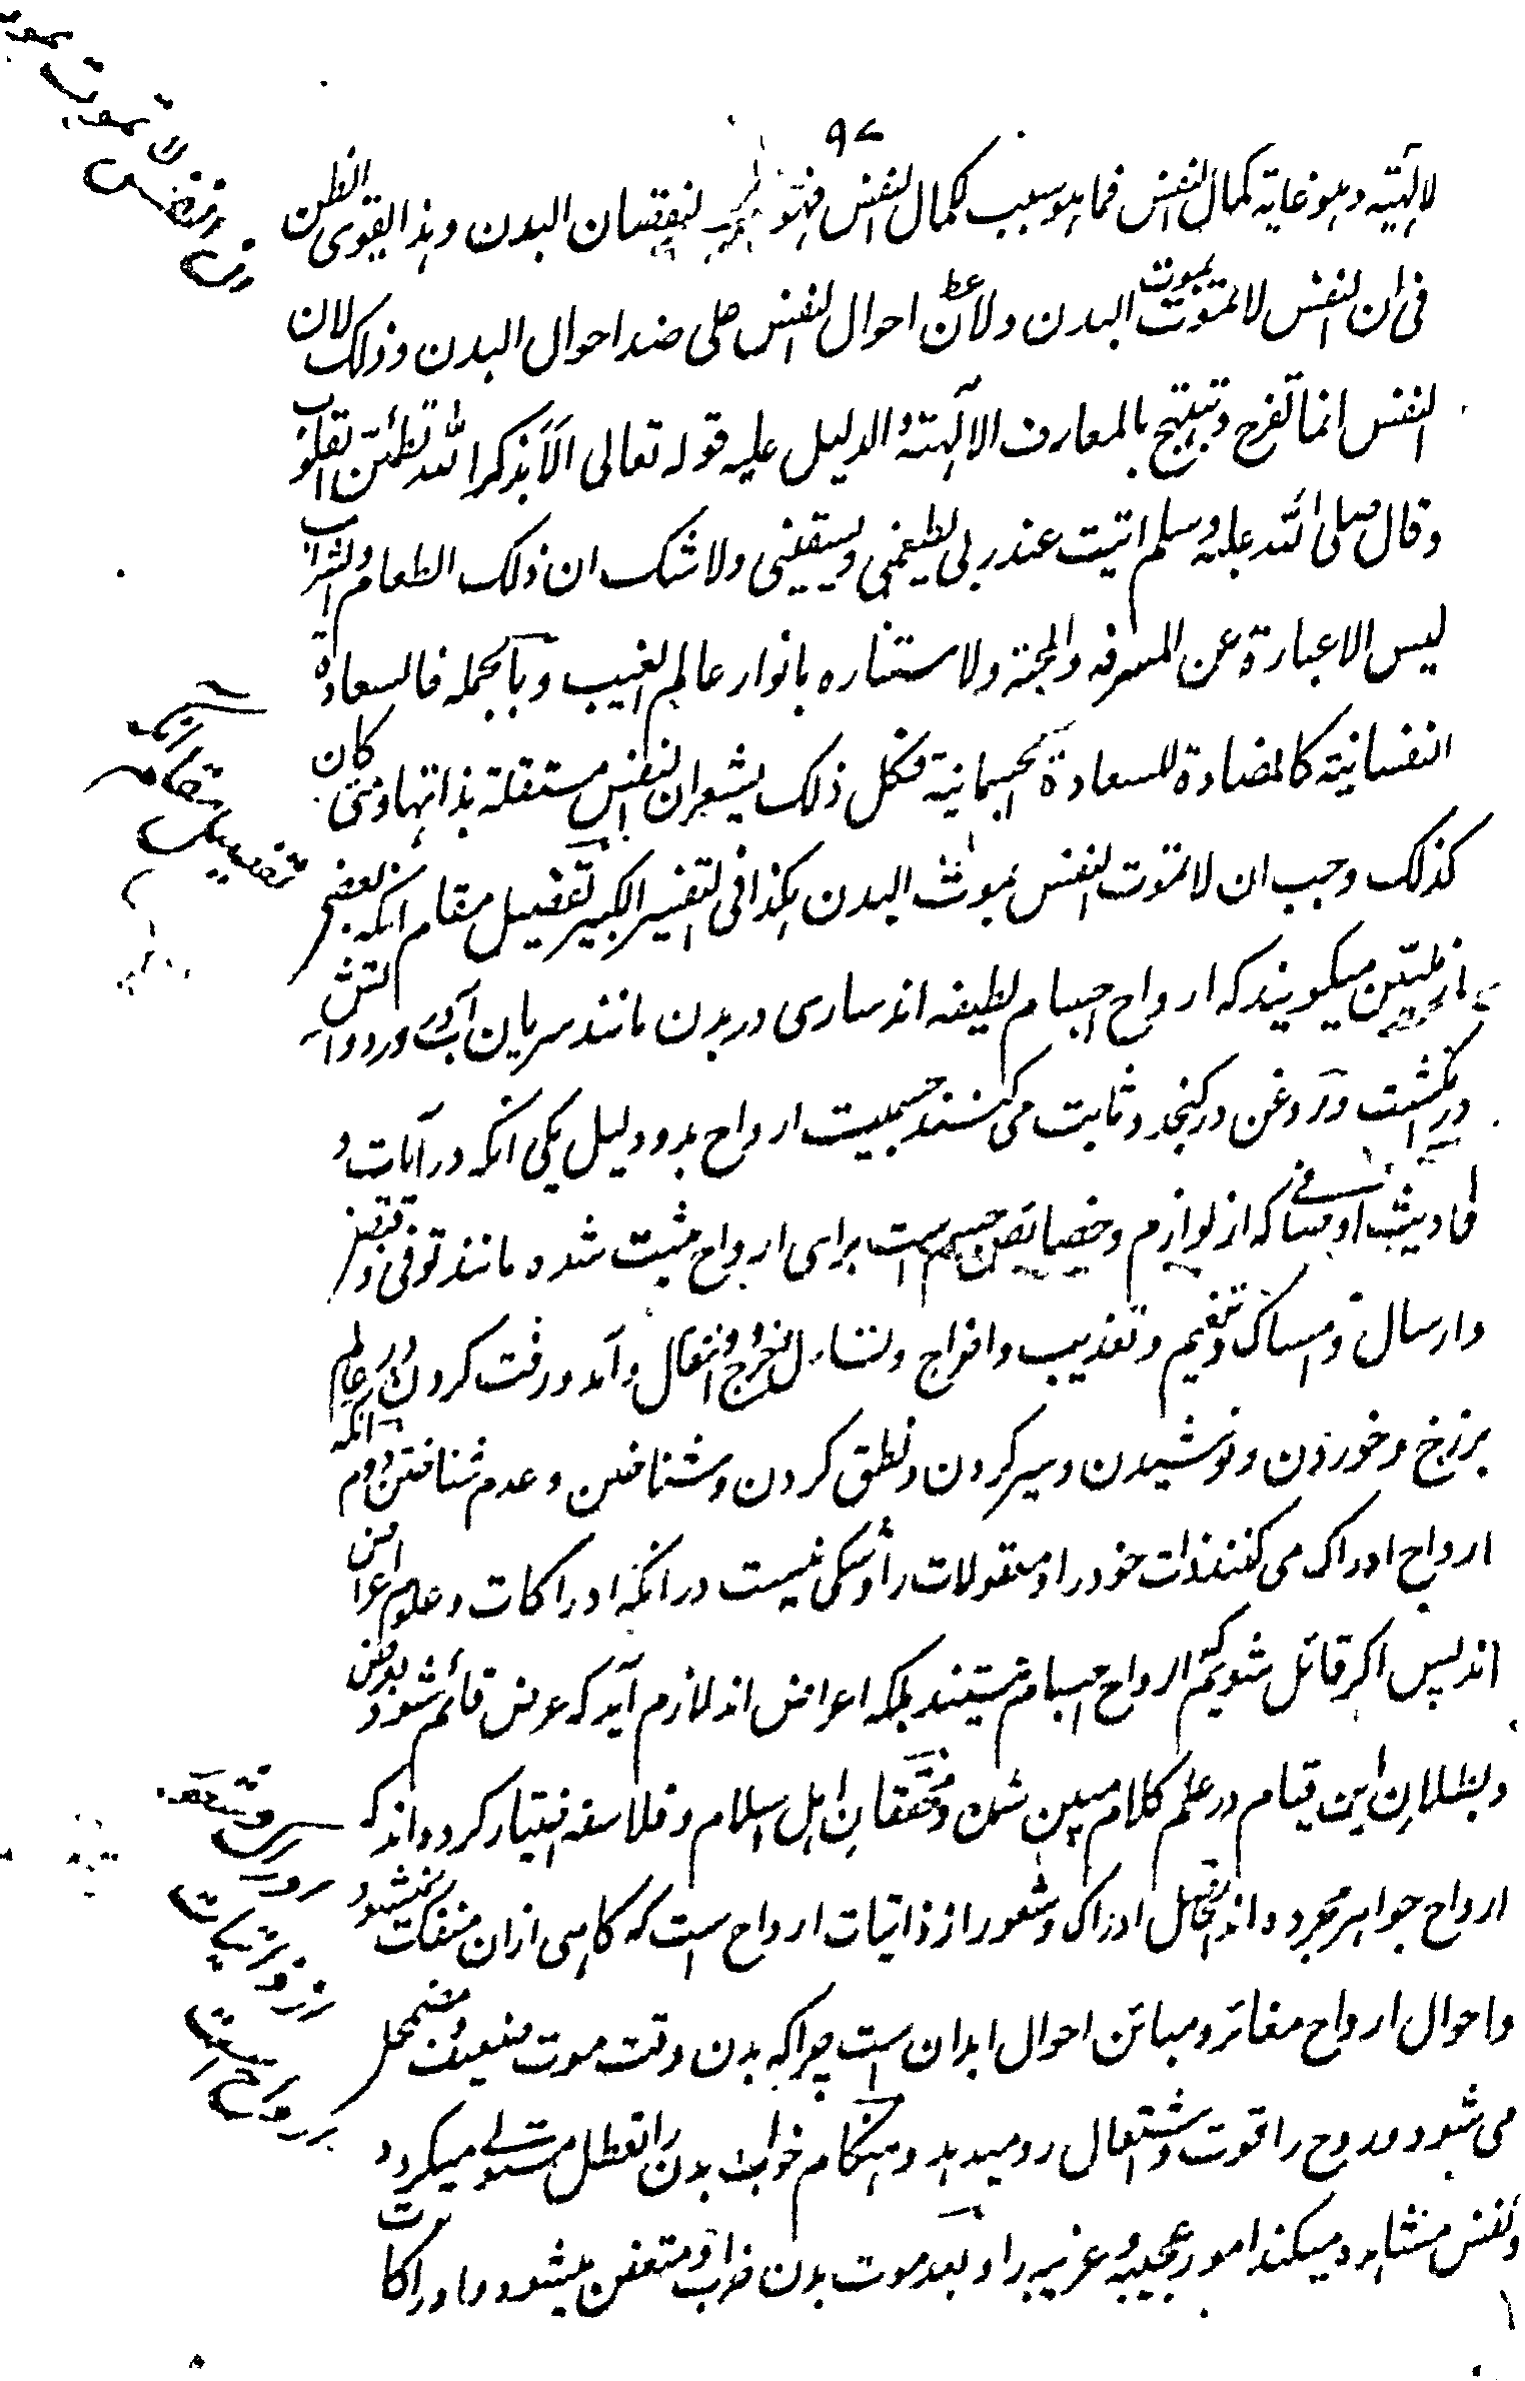 ۹۷
لالهٰیته وهو غایة کمال النفس فما هو سبب لکمال النفس فهو سبب لنقصان البدن وهذا یقوی الظن
فی ان النفس لا تموت بموت البدن ولان احوال النفس علی ضد احوال البدن وذلک لان
النفس انما تفرح وتبتهج بالمعارف الالٰهیة والدلیل علیه قوله تعالی الا بذکر الله تطمئن القلوب
وقال صلی الله علیه وسلم ابیت عند ربی یطعمنی ویسقینی ولا شک ان ذلک الطعام والشراب
لیس الا عبارة عن المعرفه والمحبة ولاستناره بانوار عالم الغیب وبالجمله فالسعادة
النفسانیة کالمضادة للسعادة الجسمانیة فکل ذلک یشعر ان النفس مستقلة بذاتها ومتی کان
کذلک وجب ان لا تموت النفس بموت البدن هکذا فی التفسیر الکبیر تفصیل مقام آنکه بعضی
از ملیین میگویند که ارواح اجسام لطیفه اند ساری در بدن مانند سریان آب در ورد و آتش
در انگشت و روغن در کنجد و ثابت می کنند جسمیت ارواح بدو دلیل یکی آنکه در آیات و
احادیث اوصافی که از لوازم و خصایص جسم است برای ارواح مثبت شده مانند توفی و قبض
و ارسال و امساک و تنعیم و تعذیب و اخراج و تنازل و خروج و انتقال و آمد و رفت کردن در عالم
برزخ و خوردن و نوشیدن و سیر کردن و نطق کردن و شناختن و عدم شناختن دوم آنکه
ارواح ادراک می کنند ذات خود را و معقولات را و شکی نیست در آنکه ادراکات و علوم اعراض
اند پس اگر قائل شویم که ارواح اجسام نیستند بلکه اعراض اند لازم آید که عرض قائم شود بعرض
و بطلان این قیام در علم کلام مبین شده و محققان اهل اسلام و فلاسفه اختیار کرده اند که
ارواح جواهر مجرده اند و تعقل و ادراک و شعور از ذاتیات ارواح است که گاهی ازان منفک نمیشود
و احوال ارواح مغائر و مبائن احوال ابدان است چرا که بدن وقت موت ضعیف و مضمحل
می شود و روح را قوت و اشتعال رو میدهد و هنگام خواب بدن را تعطل مستولی میگردد
و نفس مشاهده میکند امور عجیبه و غریبه را و بعد موت بدن خراب و متعفن میشود و ادراکات
النفس لا تموت بموت
تفصیل مقام آنکه
ادراک و شعور
از ذاتیات
روح است